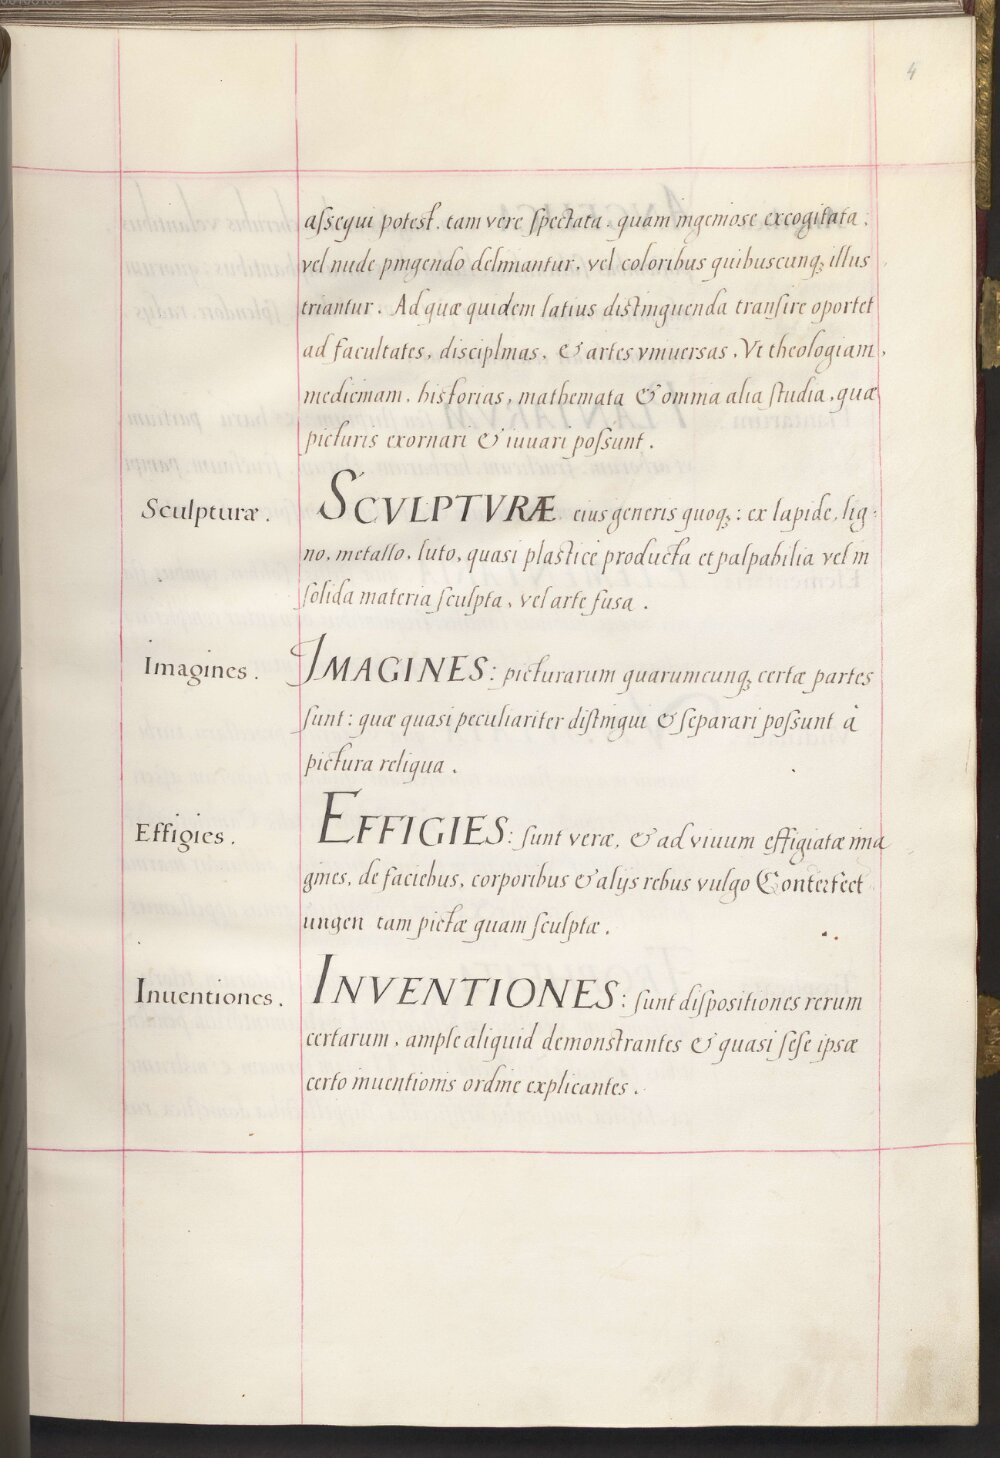 4
assequi potest. tam vere spectata. quam ingeniose excogitata:
vel nude pingendo deliniantur, vel coloribus quibuscunq; illus
triantur. Ad quæ quidem latius distinguenda transire oportet
ad facultates, disciplinas, & artes vniuersas. Vt theologiam,
medicinam, historias, mathemata & omnia alia studia, quæ
picturis exornari & iuuari possunt.
Sculpturæ. SCVLPTVRÆ eius generis quoq;: ex lapide, lig-
no, metallo, luto, quasi plastice producta et palpabilia vel in
solida materia sculpta, vel arte fusa.
Imagines. IMAGINES: picturarum quarumcunq; certæ partes
sunt: quæ quasi peculiariter distingui & separari possunt à
pictura reliqua.
Effigies. EFFIGIES: sunt veræ, & ad viuum effigiatæ ima
gines, de faciebus, corporibus & alijs rebus vulgo Conterfeet
ungen tam pictæ quam sculptæ.
Inuentiones. INVENTIONES: sunt dispositiones rerum
certarum, ample aliquid demonstrantes & quasi sese ipsæ
certo inuentionis ordine explicantes.